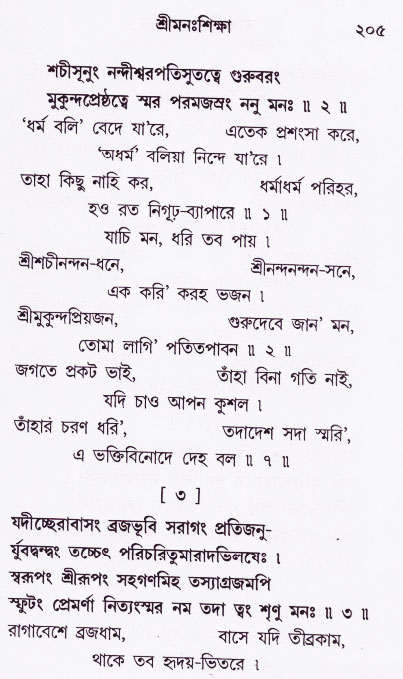 শ্রীমনঃশিক্ষা ২০৫
শচীসূনুং নন্দীশ্বরপতিসুতত্বে গুরুবরং
মুকুন্দপ্রেষ্ঠত্বে স্মর পরমজস্রং ননু মনঃ ॥ ২ ॥
‘ধর্ম বলি’ বেদে যা’রে, এতেক প্রশংসা করে,
‘অধর্ম’ বলিয়া নিন্দে যা’রে ।
তাহা কিছু নাহি কর, ধর্মাধর্ম পরিহর,
হও রত নিগূঢ়-ব্যাপারে ॥ ১ ॥
যাচি মন, ধরি তব পায় ।
শ্রীশচীনন্দন-ধনে, শ্রীনন্দনন্দন-সনে,
এক করি’ করহ ভজন ।
শ্রীমুকুন্দপ্রিয়জন, গুরুদেবে জান’ মন,
তোমা লাগি’ পতিতপাবন ॥ ২ ॥
জগতে প্রকট ভাই, তাঁহা বিনা গতি নাই,
যদি চাও আপন কুশল ।
তাঁহার চরণ ধরি’, তদাদেশ সদা স্মরি’,
এ ভক্তিবিনোদে দেহ বল ॥ ৭ ॥
[ ৩ ]
যদীচ্ছেরাবাসং ব্রজভূবি সরাগং প্রতিজনু-
র্যুবদ্বন্দ্বং তচ্চেৎ পরিচরিতুমারাদভিলষেঃ ।
স্বরূপং শ্রীরূপং সহগণমিহ তস্যাগ্রজমপি
স্ফুটং প্রেমর্ণা নিত্যংস্মর নম তদা ত্বং শৃণু মনঃ ॥ ৩ ॥
রাগাবেশে ব্রজধাম, বাসে যদি তীব্রকাম,
থাকে তব হৃদয়-ভিতরে ।